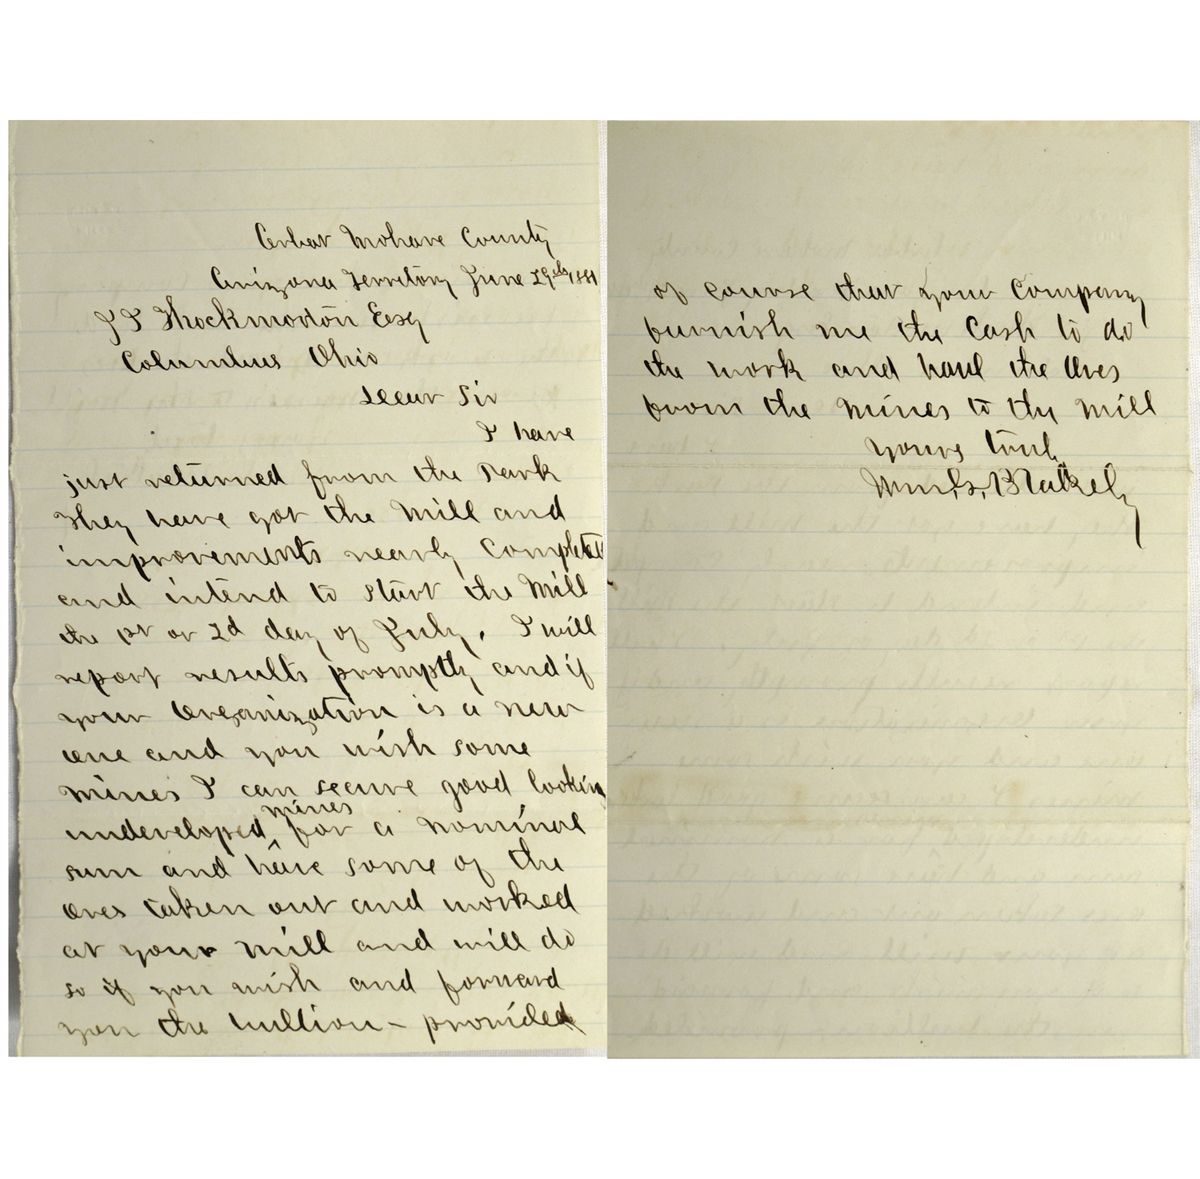 Cerbat Mohave County
Arizona Territory June 29th 1881
J T Throckmorton Esq
Columbus Ohio
Dear Sir
I have
just returned from the Park
They have got the Mill and
improvements nearly Completed
and intend to start the Mill
the 1st or 2d day of July, I will
report results promptly and if
your Organization is a new
one and you wish some
mines I can secure good looking
undeveloped mines for a nominal
sum and have some of the
Ores taken out and worked
at your mill and will do
so if you wish and forward
you the bullion – provided
of course that your Company
furnish me the Cash to do
the work and haul the Ores
from the Mines to the Mill
Yours truly
Wm. S. Blakely